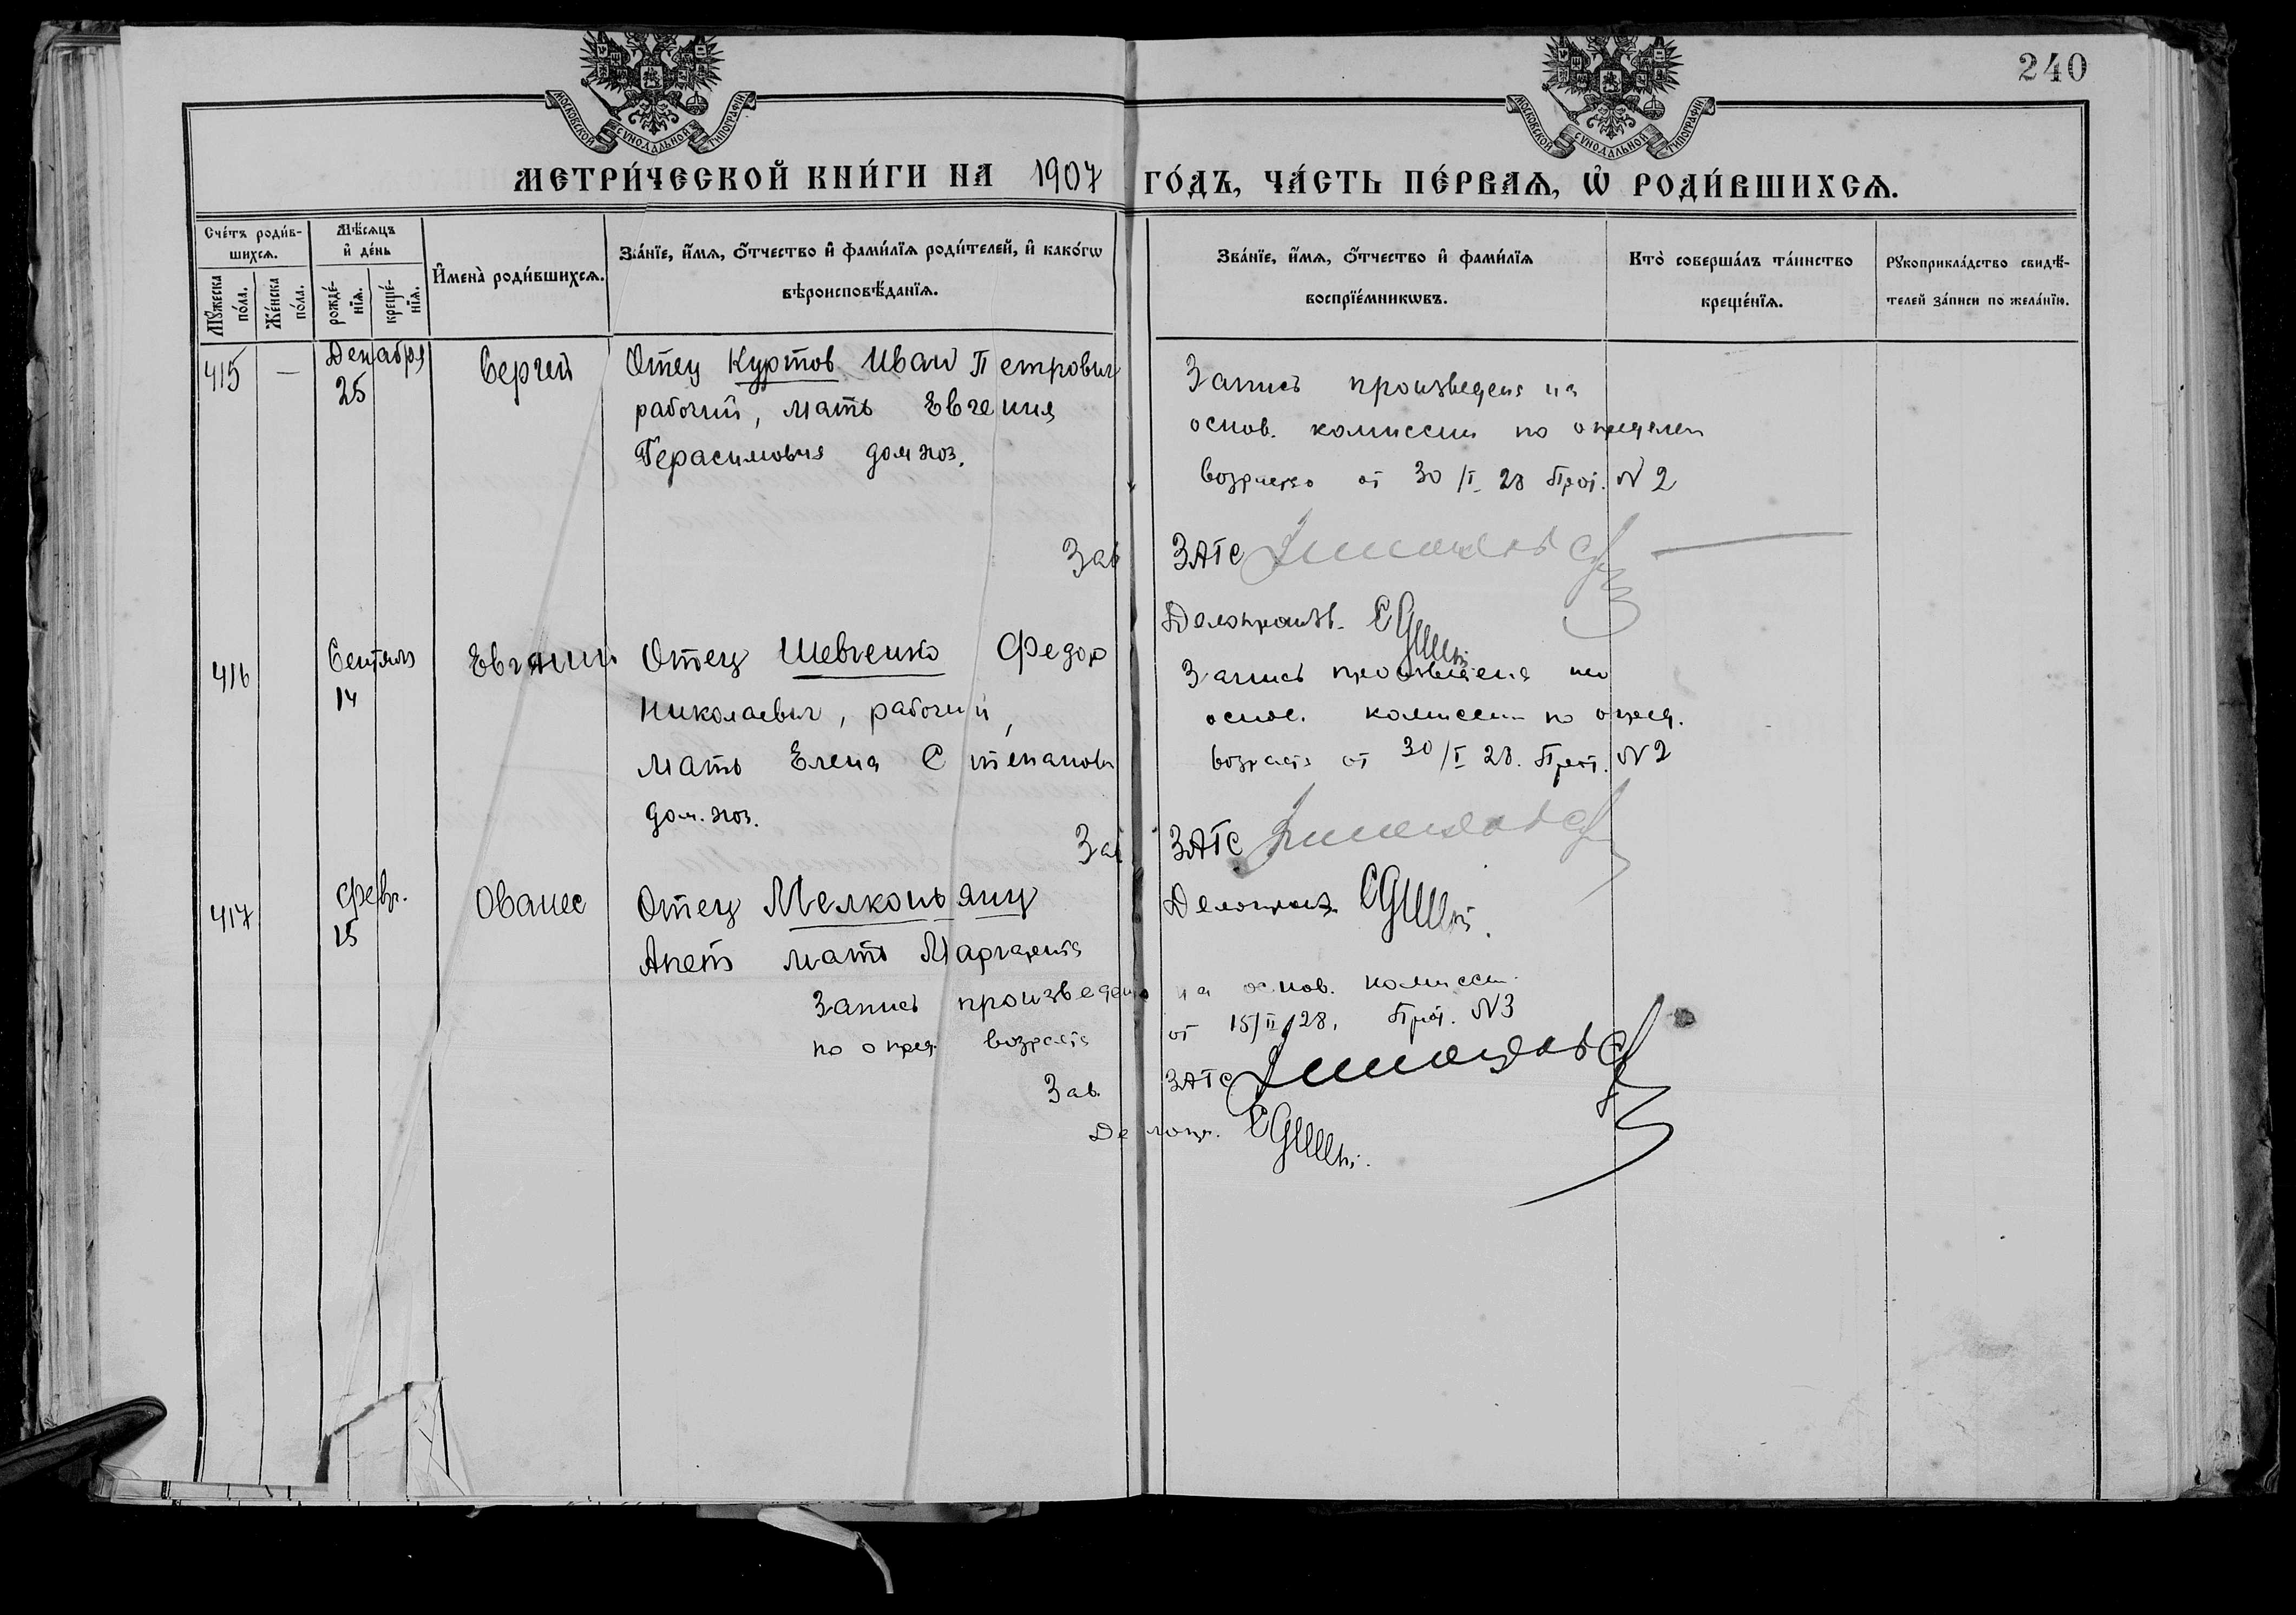 240
МОСКОВСКОЙ СѴНОДАЛЬНОЙ ТИПОГРАФІИ
МОСКОВСКОЙ СѴНОДАЛЬНОЙ ТИПОГРАФІИ
МЕТРИ́ЧЕСКОЙ КНИ́ГИ НА 1907 ГО́ДЪ, ЧА́СТЬ ПЕ́РВАѦ, Ѡ҆ РОДИ́ВШИХСѦ.
Сче́тъ роди́в-
шихсѧ.
Мꙋ́жеска по́ла.
Же́нска по́ла.
Мѣ́сѧцъ
и҆ де́нь
рожде́-
нїѧ.
креще́-
нїѧ.
И҆мена̀ роди́вшихсѧ.
Зва́нїе, и҆́мѧ, ѻ҆́тчество и҆ фами́лїѧ роди́телей, и҆ како́гѡ
вѣроисповѣ́данїѧ.
Зва́нїе, и҆́мѧ, ѻ҆́тчество и҆ фами́лїѧ
воспрїе́мникѡвъ.
Кто̀ соверша́лъ та́инство
креще́нїѧ.
Рꙋкоприкла́дство свидѣ́-
телей за́писи по жела́нїю.
415 —
Декабря
25
Сергей
Отец Куртов Иван Петрович
рабочий, мать Евгения
Герасимовна дом хоз.
Запись произведена на
основ. комиссии по определен
возраста от 30/I 28 Прот. N 2
Зав ЗАГС
Делопроизв.
416
Сентяб
14
Евгений
Отец Шевченко Федор
Николаевич, рабочий,
мать Елена Степанов
дом. хоз.
Запись произведена на
основ. комиссии по опред.
возраста от 30/I 28. Прот. N 2
Зав ЗАГС
Делопроиз.
417
Февр.
15
Ованес
Отец Мелконьянц
Апет мать Маргарита
Запись произведена на основ. комиссии
по опред. возраста от 15/II 28, Прот. N3
Зав. ЗАГС
Делопр.